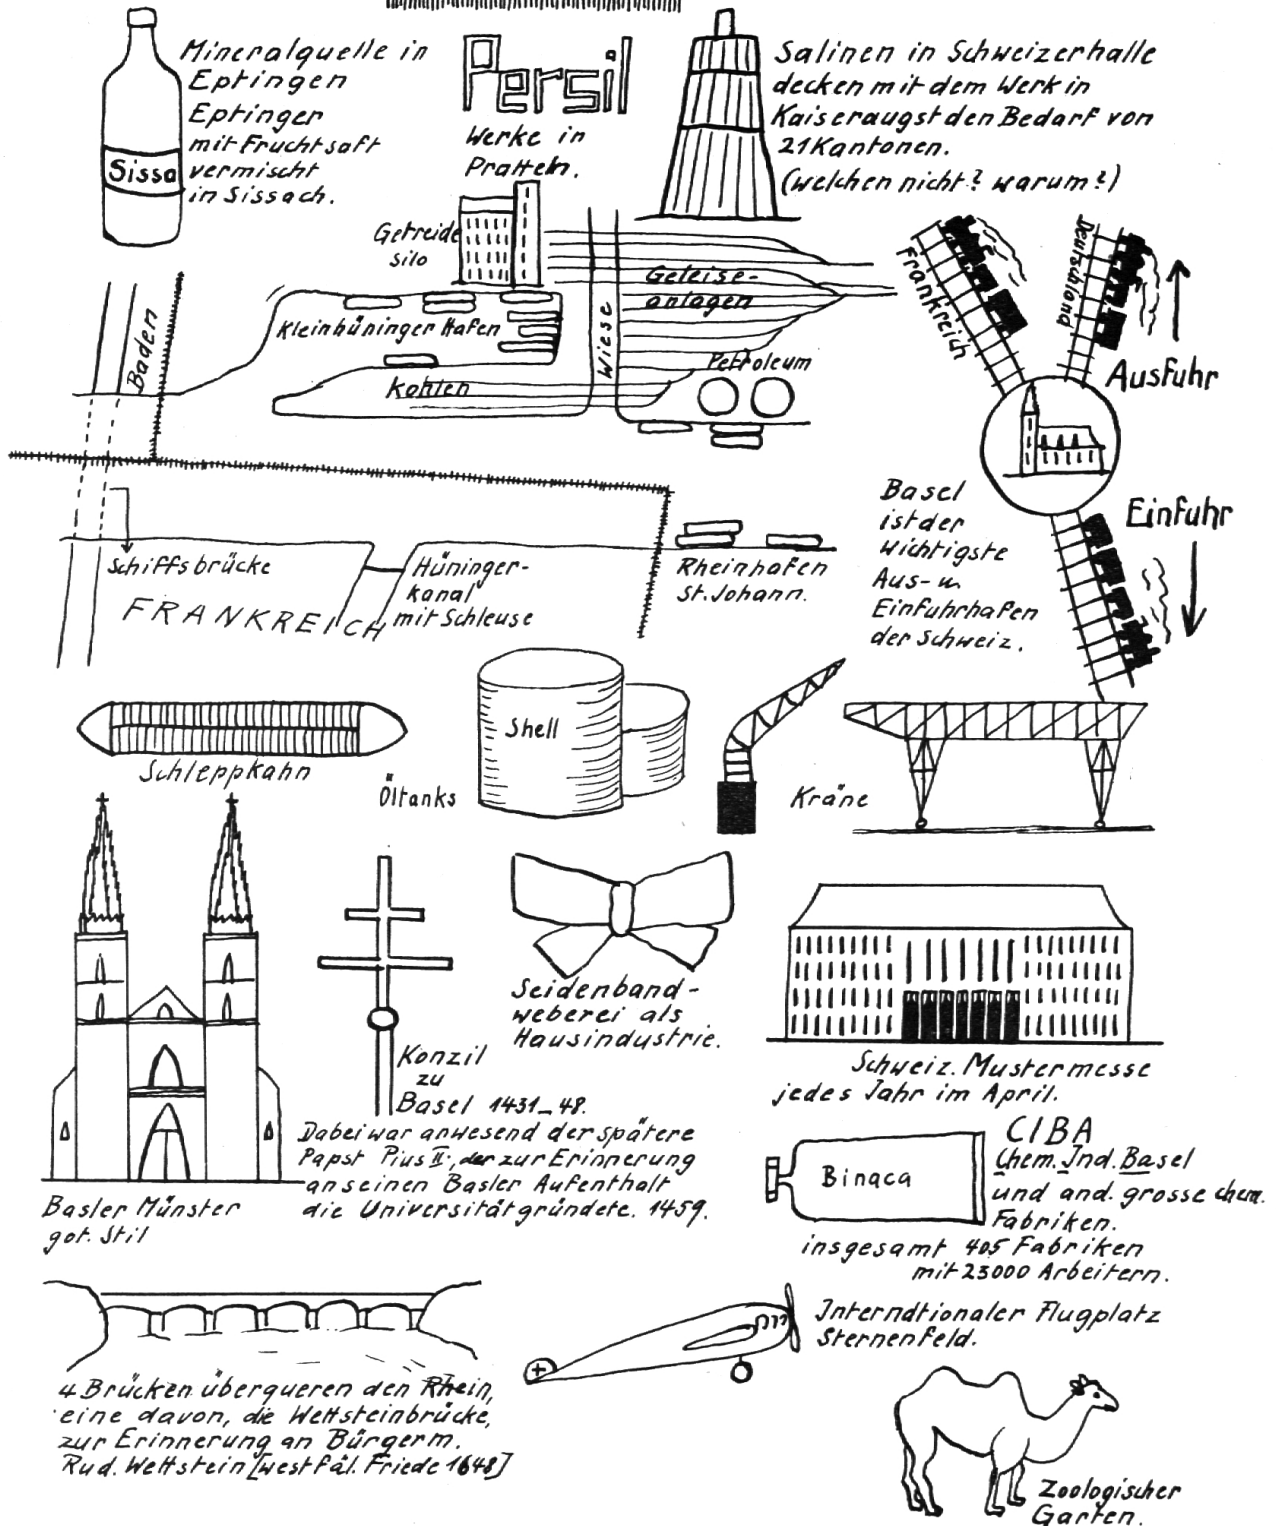 Mineralquelle in
Eptingen
Eptinger
mit Fruchtsaft
vermischt
in Sissach.
Sissa
Persil
Werke in
Pratteln.
Salinen in Schweizerhalle
decken mit dem Werk in
Kaiseraugst den Bedarf von
21 Kantonen.
(welchen nicht? warum?)
Getreide
silo
Geleise-
anlagen
Kleinhüninger Hafen
Wiese
Petroleum
Kohlen
Baden
Frankreich
Deutschland
Ausfuhr
Einfuhr
Basel
ist der
wichtigste
Aus- u.
Einfuhrhafen
der Schweiz.
Schiffsbrücke
FRANKREICH
Hüninger-
kanal
mit Schleuse
Rheinhafen
St. Johann.
Schleppkahn
Shell
Öltanks
Kräne
Seidenband-
weberei als
Hausindustrie.
Konzil
zu
Basel 1431_48.
Dabei war anwesend der spätere
Papst Pius II., der zur Erinnerung
an seinen Basler Aufenthalt
die Universität gründete. 1459.
Basler Münster
got. Stil
Schweiz. Mustermesse
jedes Jahr im April.
CIBA
Chem. Ind. Basel
und and. grosse chem.
Fabriken.
insgesamt 405 Fabriken
mit 23000 Arbeitern.
Binaca
4 Brücken überqueren den Rhein,
eine davon, die Wettsteinbrücke,
zur Erinnerung an Bürgerm.
Rud. Wettstein [westfäl. Friede 1648]
Interndtionaler Flugplatz
Sternenfeld.
Zoologischer
Garten.